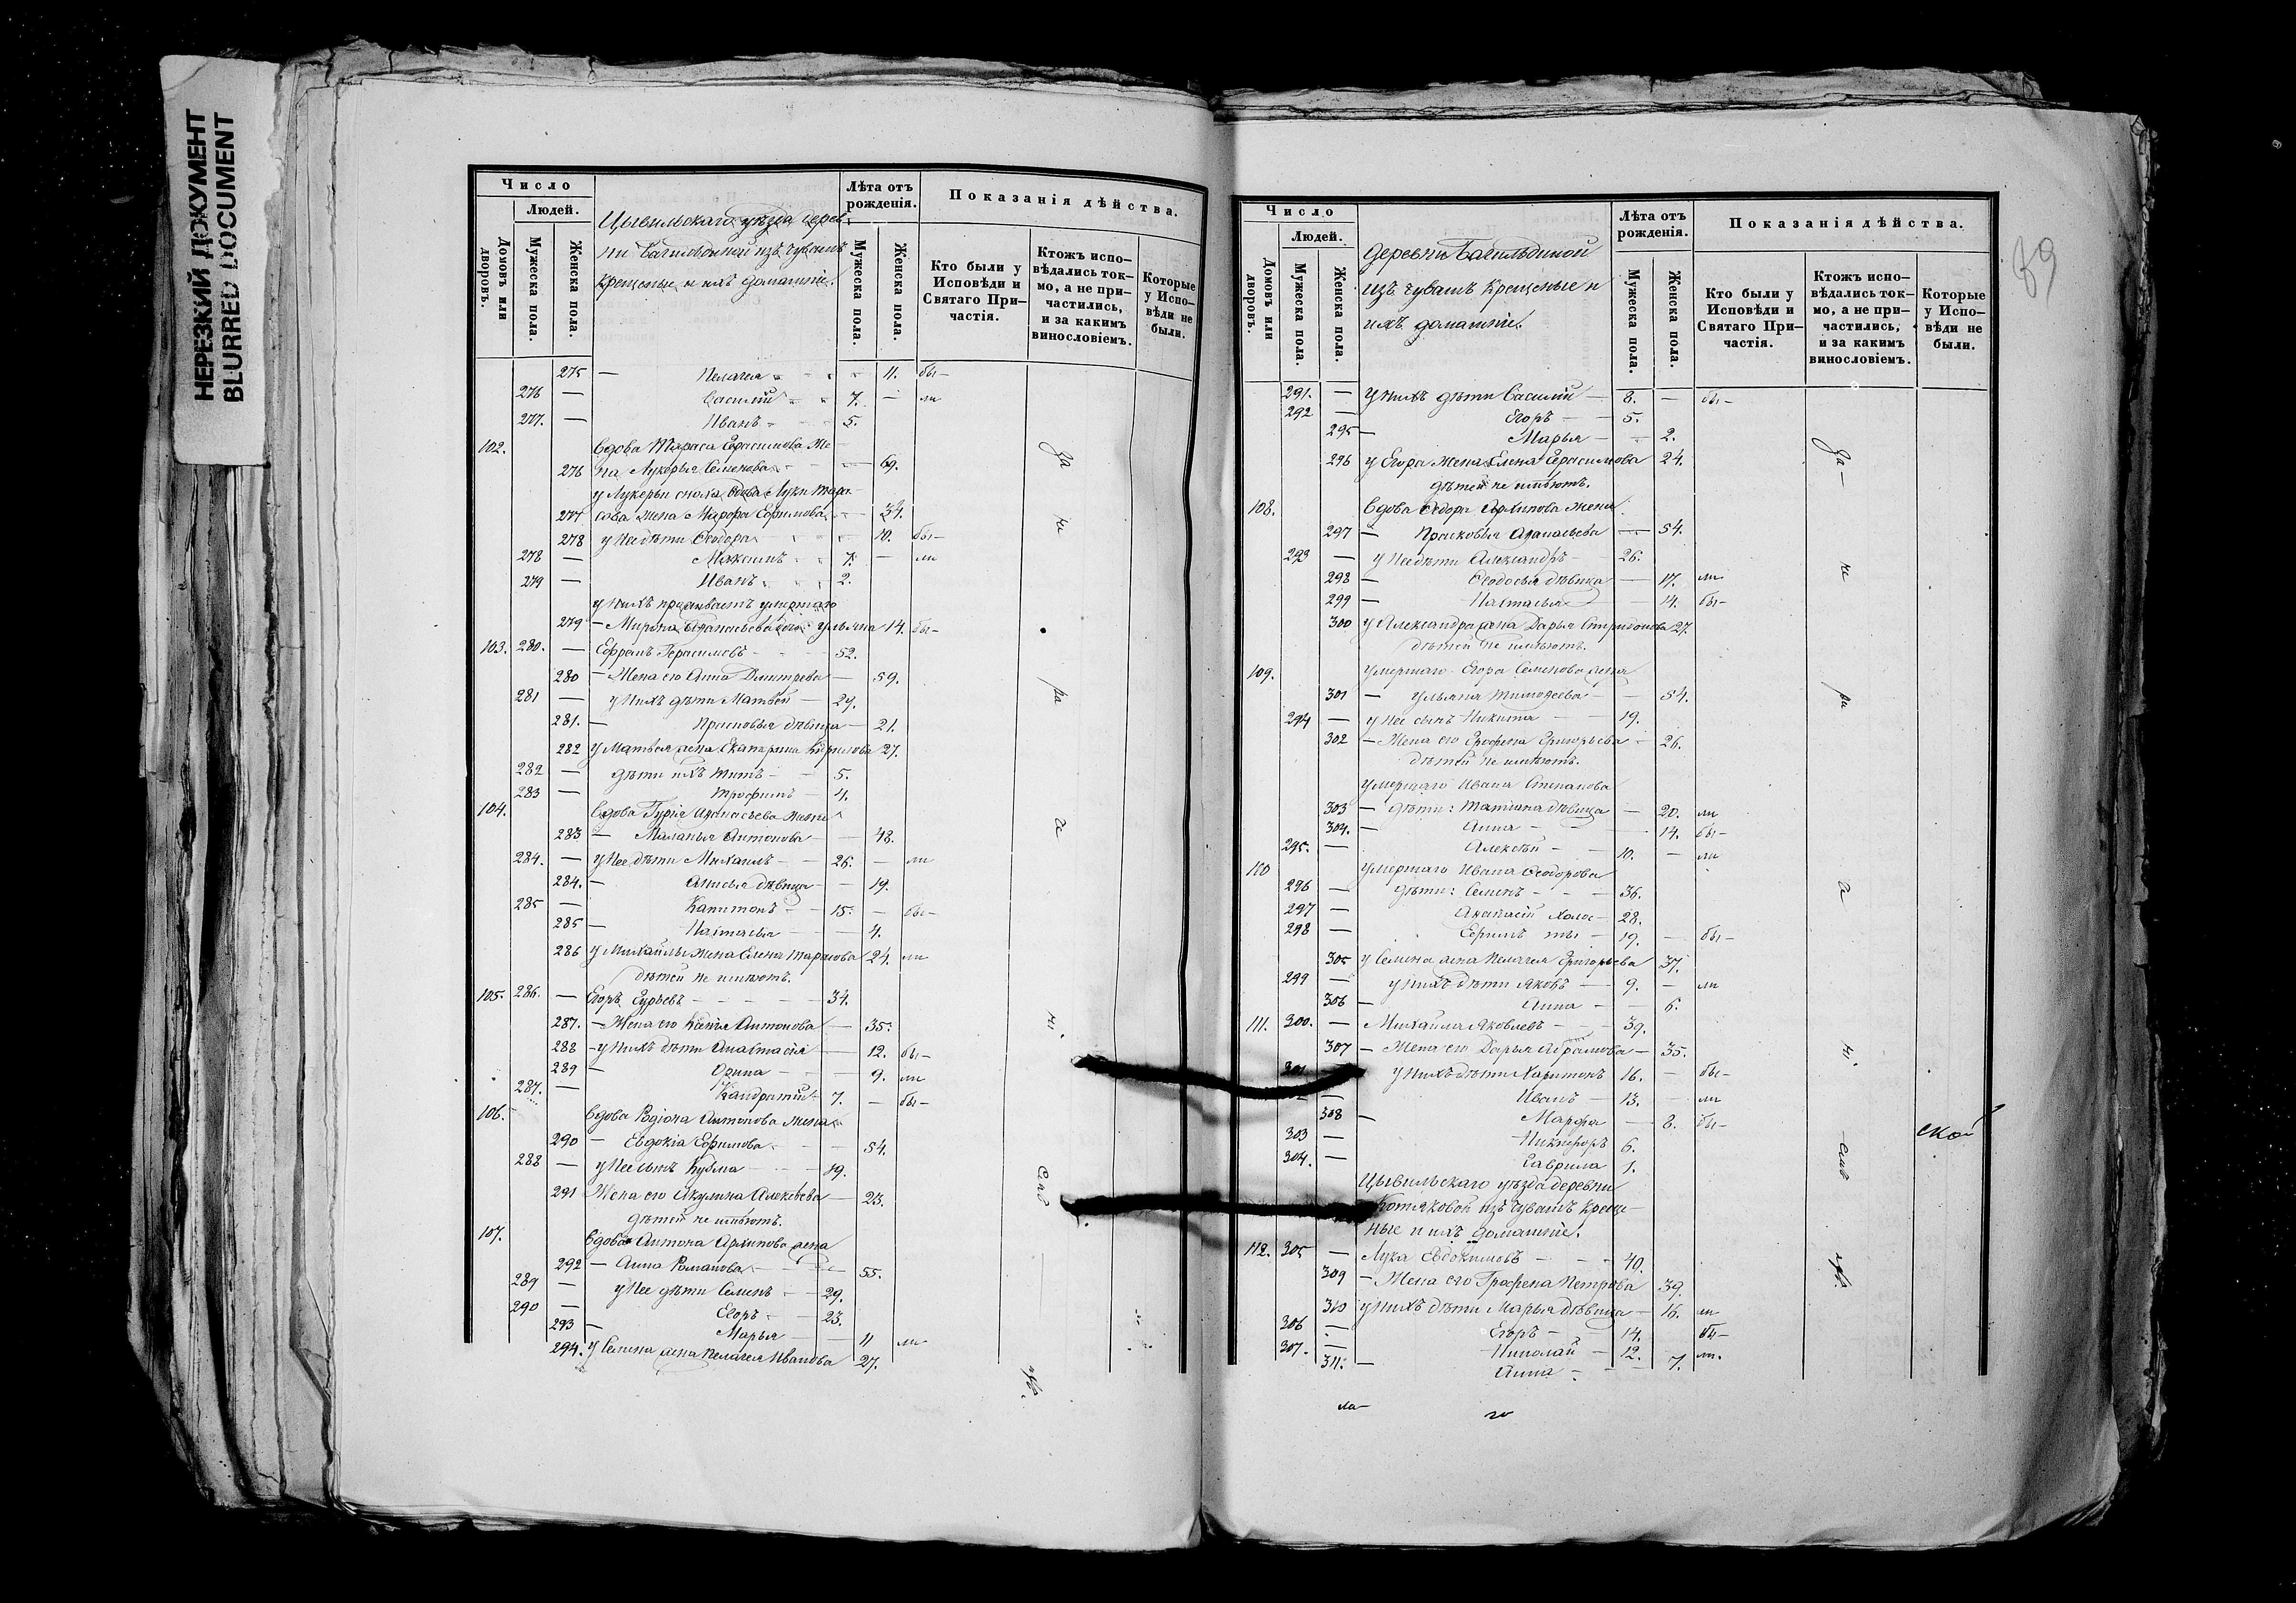 НЕРЕЗКИЙ ДОКУМЕНТ
BLURRED DOCUMENT
Число
Людей.
Домовъ или дворовъ.
Мужеска пола.
Женска пола.
Цывильскаго уѣзда дерев-
ни Багильдиной изъ чувашъ
крещеные и ихъ домашніе.
Лѣта отъ рожденія.
Мужеска пола.
Женска пола.
Показанія дѣйства.
Кто были у Исповѣди и Святаго Причастія.
Ктожъ исповѣдались токмо, а не причастились, и за какимъ винословіемъ.
Которые у Исповѣди не были.
275 — Пелагея 11. бы-
276 — Василій 7. — ли
277. — Иванъ 5.
102. Вдова Тараса Герасимова же-
276 на Лукерья Семенова 69.
у Лукерьи сноха вдова Луки Тара-
277 сова жена Марфа Ефимова 34.
278 у нее дѣти Феодора 10. бы-
278 — Максимъ 7. — ли
279 — Иванъ 2.
у нихъ проживаетъ умершаго
279 — Мирона Афанасьева Ульяна 14. бы-
103. 280. — Ефремъ Герасимовъ 52.
280 — Жена его Анна Дмитрева 59.
281 — у нихъ дѣти Матвѣй 29.
281. — Прасковья дѣвица 21.
282 у Матвея жена Екатерина Кирилова 27.
282 — дѣти ихъ Титъ 5.
283 — Трофимъ 4.
104. Вдова Гурія Афанасьева жена
283 — Маланья Антонова 48.
284. — у нее дѣти Михаилъ 26. — ли
284. — Анисья дѣвица 19.
285 — Капитонъ 15. — бы-
285 — Настасья 4.
286 у Михайлы жена Елена Тарасова 24. ли
дѣтей не имѣютъ.
105. 286. — Егоръ Гурьевъ 34.
287. — Жена его Ксенія Антонова 35.
288 — у нихъ дѣти Анастасія 12. бы-
289 — Орина 9. ли
287. — Кандратій 7. — бы-
106. Вдова Родіона Антонова жена
290 — Евдокія Ефимова 54.
288 — у нее сынъ Кузма 19.
291 Жена его Акулина Алексѣева 23.
дѣтей не имѣютъ.
107. Вдова Антона Архипова жена
292 — Анна Романова 55.
289 — у нее дѣти Семенъ 29.
290 — Егоръ 23.
293 — Марья 11 ли
294. у Семена жена Пелагея Иванова 27.
89
Число
Людей.
Домовъ или дворовъ.
Мужеска пола.
Женска пола.
Деревни Багильдиной
изъ чувашъ крещеные и
ихъ домашніе.
Лѣта отъ рожденія.
Мужеска пола.
Женска пола.
Показанія дѣйства.
Кто были у Исповѣди и Святаго Причастія.
Ктожъ исповѣдались токмо, а не причастились, и за какимъ винословіемъ.
Которые у Исповѣди не были.
291. — у нихъ дѣти Василій 8. — бы-
292 — Егоръ 5.
295 — Марья 2.
296 у Егора жена Елена Герасимова 24.
дѣтей не имѣютъ.
108. Вдова Федора Архипова жена
297 — Прасковья Афанасьева 54.
293 — у нее дѣти Александръ 26.
298 — Феодосья дѣвица 17. ли
299 — Настасья 14. бы-
300 у Александра жена Дарья Спиридонова 27.
дѣтей не имѣютъ.
109. Умершаго Егора Семенова жена
301 — Ульяна Тимофеева 54.
294 — у нее сынъ Никита 19.
302 — Жена его Грофена Григорьева 26.
дѣтей не имѣютъ.
Умершаго Ивана Степанова
303 — дѣти: Татіана дѣвица 20. ли
304. — Анна 14. бы-
295. — Алексѣй 10. — ли
110 Умершаго Ивана Феодорова
296 — дѣти: Семенъ 36.
297 — Анатолій холос- 28.
298 — Ефимъ ты 19. — бы-
305 у Семена жена Пелагея Григорьева 37.
299 — у нихъ дѣти Яковъ 9. — ли
306 — Анна 6.
111. 300. — Михайла Яковлевъ 39.
307 — Жена его Дарья Абрамова 35.
301 у нихъ дѣти Харитонъ 16. — бы-
— Иванъ 13. — ли
308 — Марфа 8. бы-
303 — Никифоръ 6.
304. — Гаврила 1.
Цывильскаго уѣзда деревни
Котяковой изъ чувашъ креще-
ные и ихъ домашніе.
112. 305 — Лука Евдокимовъ 40.
309 — Жена его Грофена Петрова 39.
310 у нихъ дѣти Марья дѣвица 16. ли
306 — Егоръ 14. бы-
307. — Николай 12. ли.
311. — Анна 7.
ской